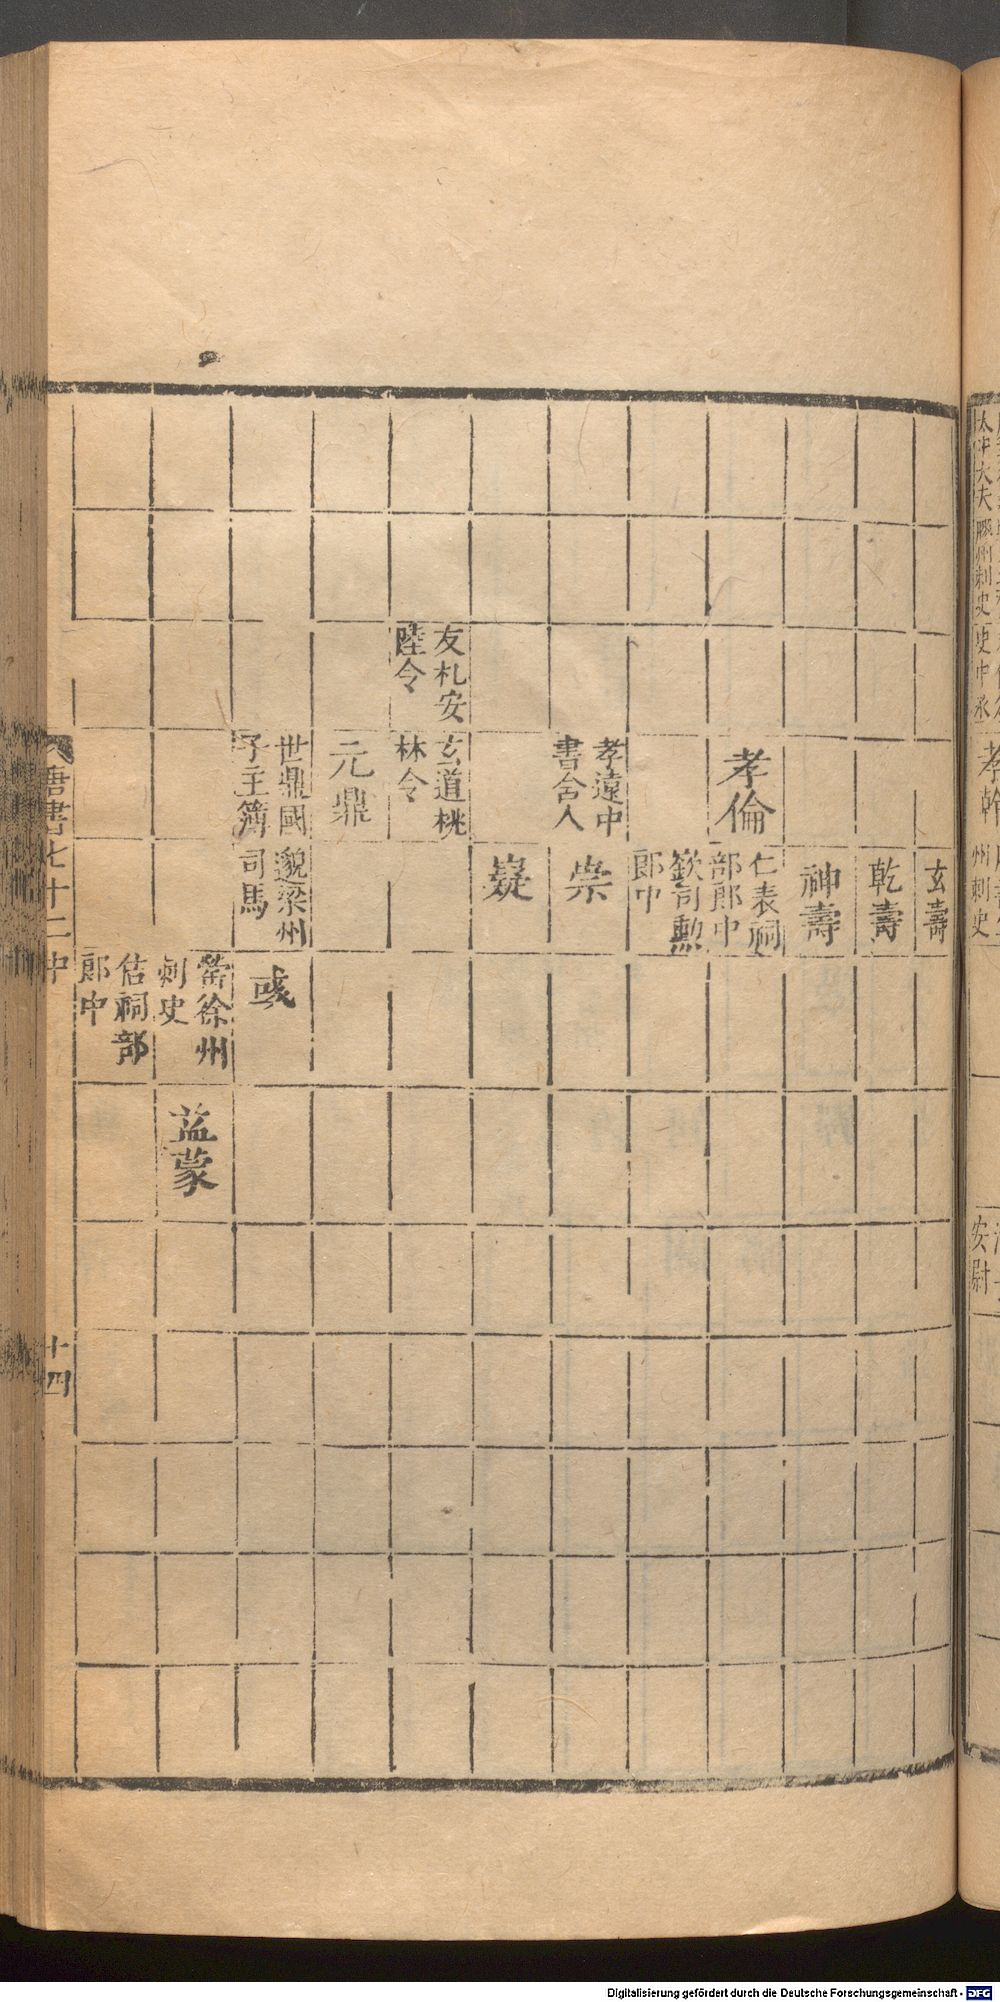 太中大夫
膠州刺史
史中丞
孝幹
州刺史
安尉
玄壽
乾壽
神壽
孝倫
仁表祠
部郎中
嶔司勳
郎中
孝遠中
書舍人
崇
嶷
友札安
陸令
玄道桃
林令
元鼎
世鼎國
子主簿
邈梁州
司馬
彧
徐州
刺史
蒙
佶祠部
郎中
唐書七十二中
十四
Digitalisierung gefördert durch die Deutsche Forschungsgemeinschaft - DFG